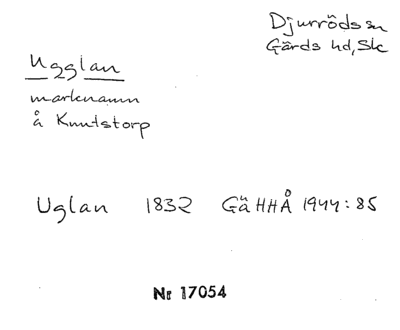 Djurröds sn
Gärds hd, Sk
Ugglan
marknamn
å Knutstorp
Uglan 1832 GäHHÅ 1944:85
Nr 17054